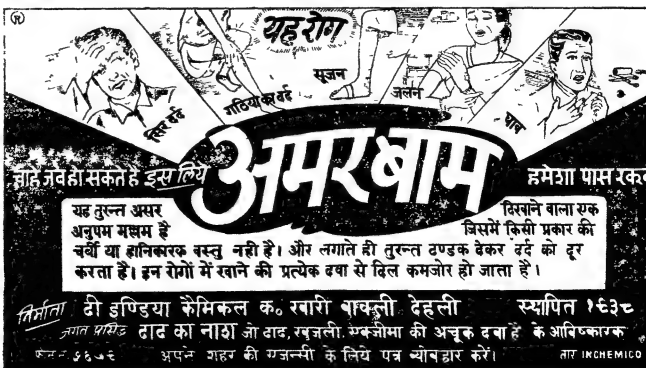 यह रोग
सिर दर्द
गठिया का दर्द
सूजन
जलन
घाव
चाहे जब हो सकते है इस लिये
अमरबाम
हमेशा पास रक
यह तुरन्त असर दिखाने वाला एक
अनुपम मल्लम है जिसमें किसी प्रकार की
चर्बी या हानिकारक वस्तु नही है। और लगाते ही तुरन्त ठण्डक देकर दर्द को दूर
करता है। इन रोगों में खाने की प्रत्येक दवा से दिल कमजोर हो जाता है।
निर्माता दी इण्डिया कैमिकल क० खारी बावली देहली स्थापित १९३८
जगत प्रसिद्ध दाद का नाश जो दाद, खुजली, एक्जीमा की अचूक दवा है के आविष्कारक
अपने शहर की एजन्सी के लिये पत्र व्योबहार करें। तार INCHEMICO